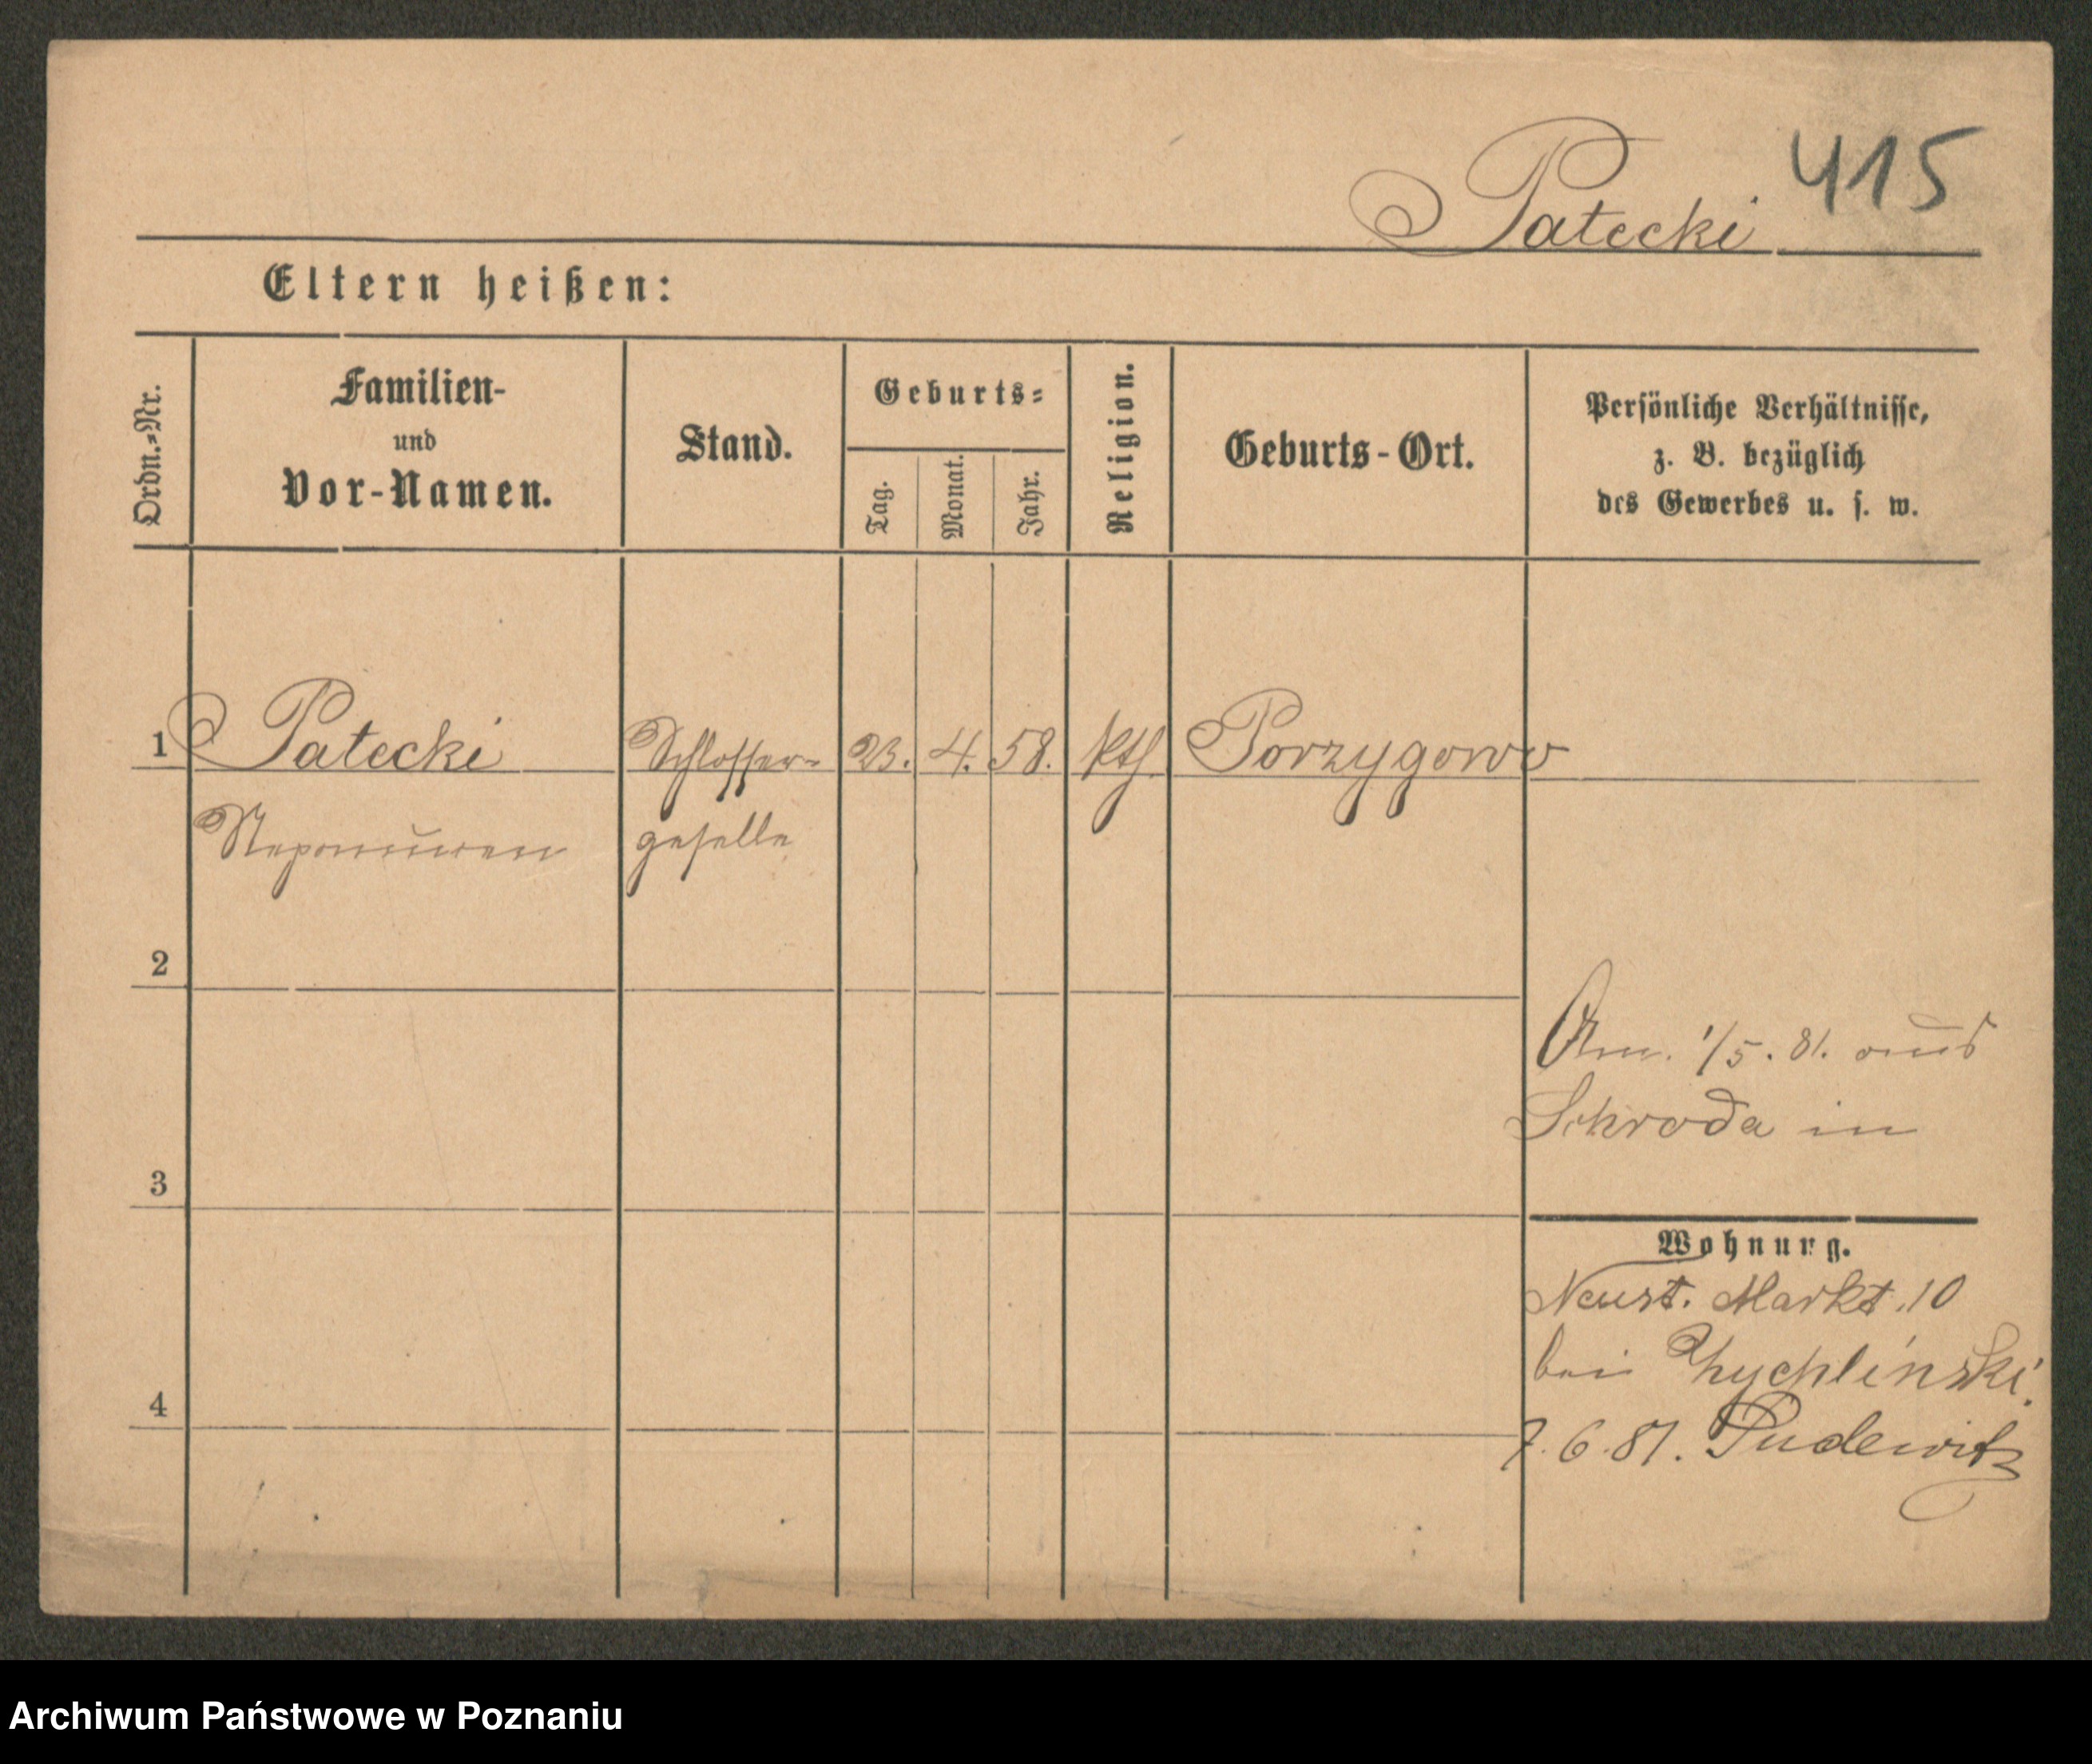 415
Patecki
Eltern heißen:
Ordn.=Nr.
Familien-
und
Vor-Namen.
Stand.
Geburts=
Tag.
Monat.
Jahr.
Religion.
Geburts-Ort.
Persönliche Verhältnisse,
z. B. bezüglich
des Gewerbes u. s. w.
1 Patecki Schlosser= 23. 4. 58. kth. Porzygowo
geselle
2
Am. 1/5. 81. aus
Schroda in
3
Wohnung.
Neust. Markt. 10
bei Zychlinski.
4
7. 6. 81. Pudewitz
Archiwum Państwowe w Poznaniu